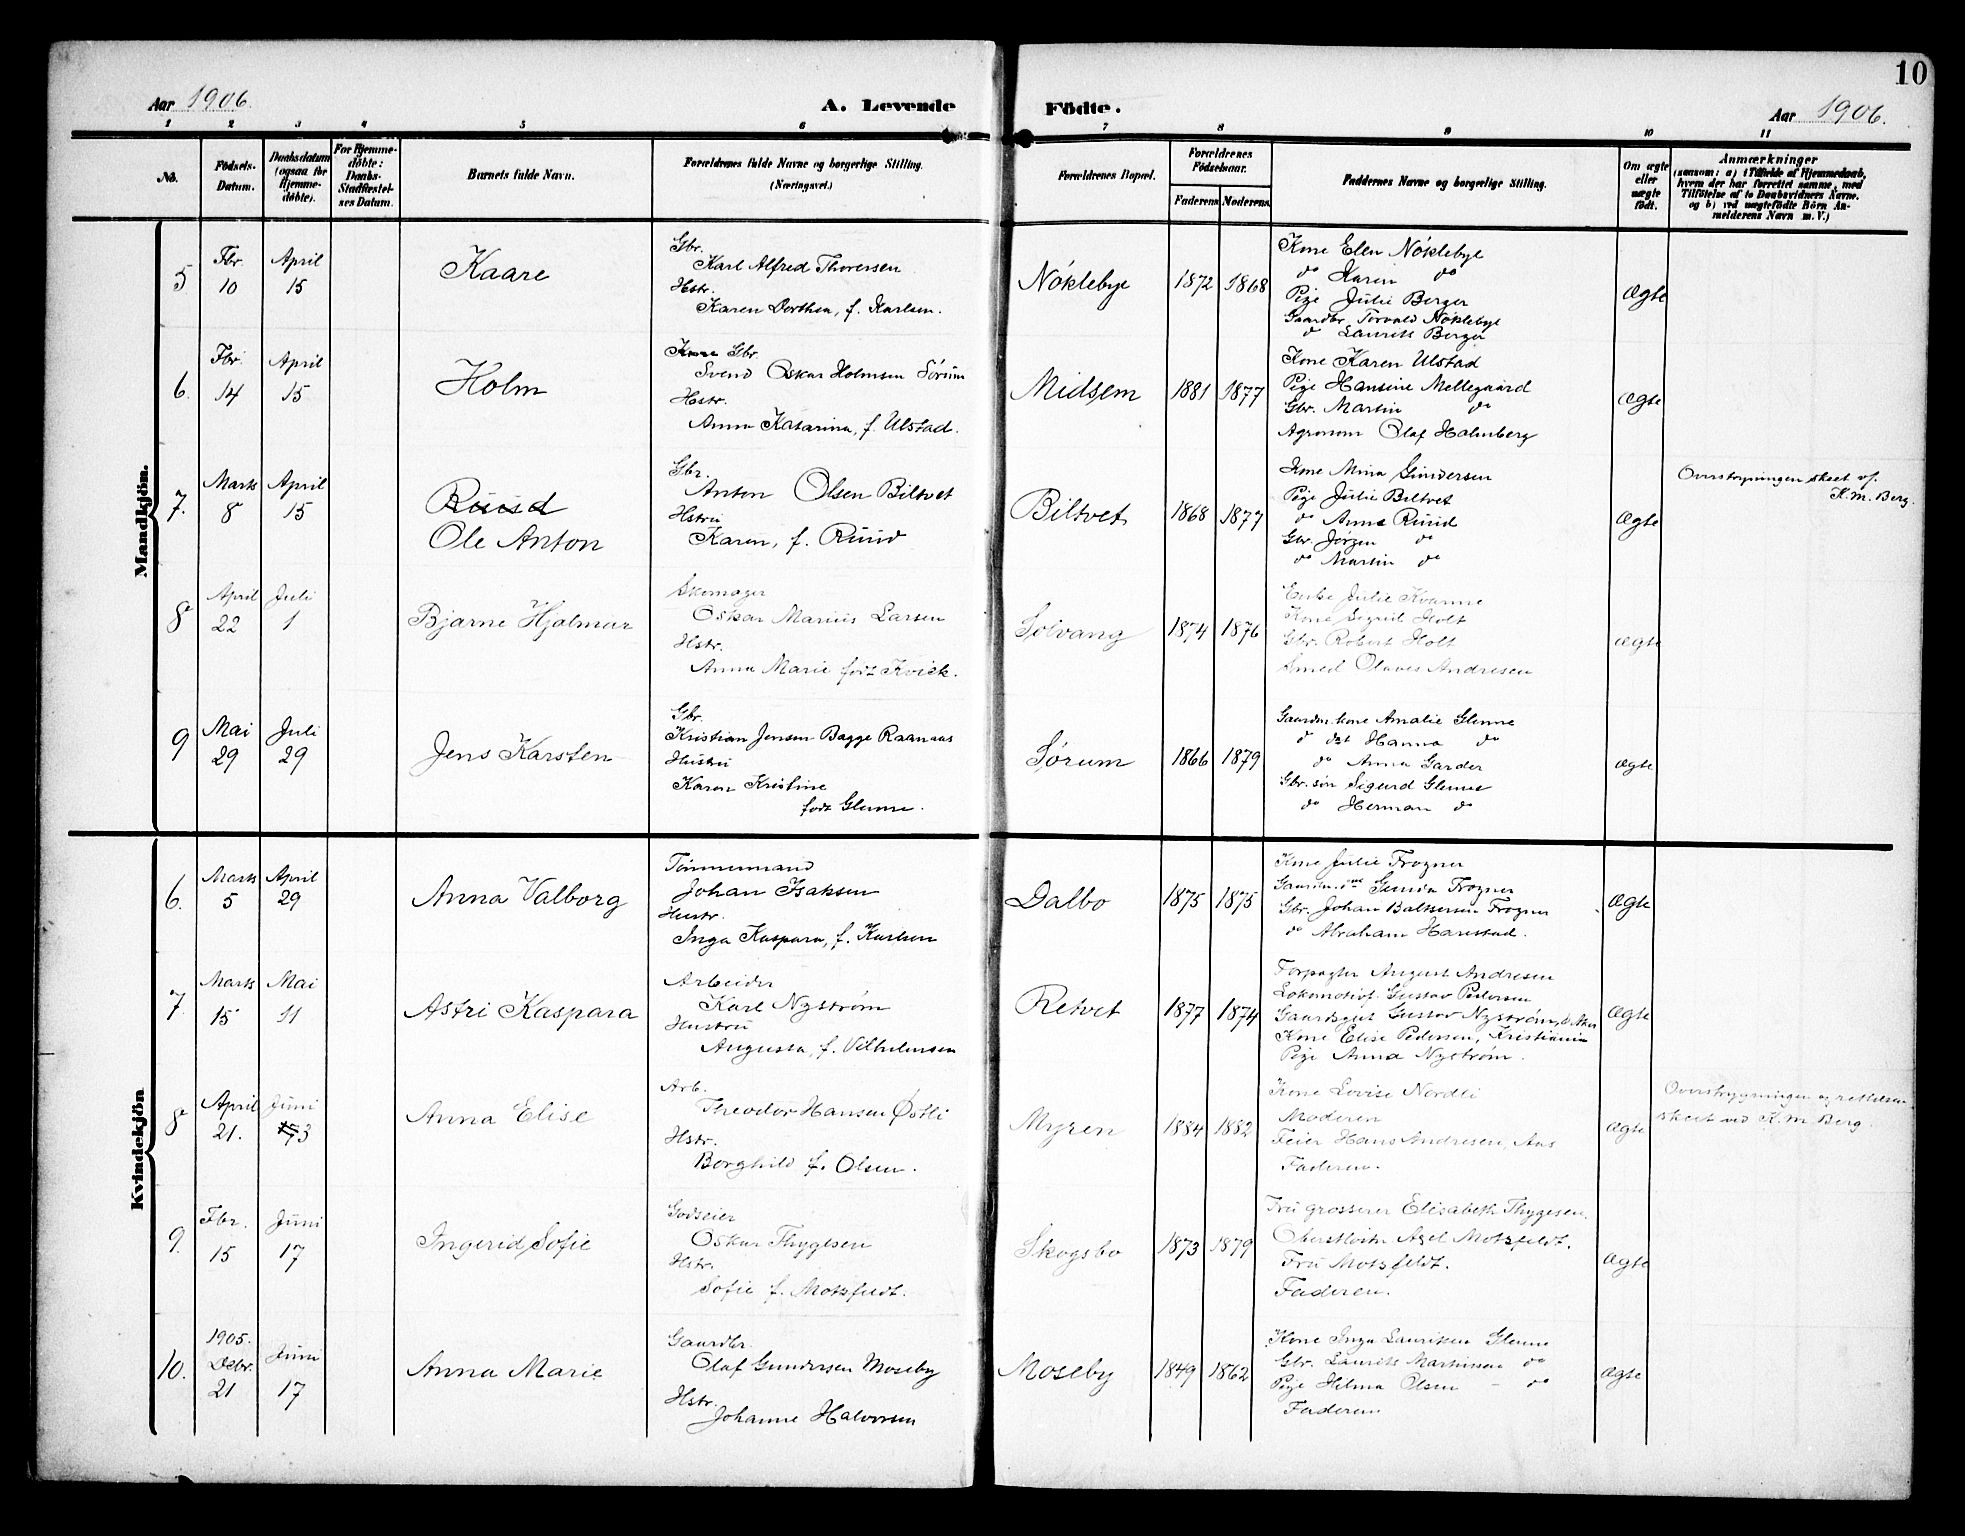 10
Aar 1906.
A. Levende
Födte.
Aar 1906.
1 2 3 4 5 6 7 8 9 10 11
No.
Födsels-
Datum.
Daabsdatum
(ogsaa for
Hjemme-
döbte).
For Hjemme-
döbte:
Daabs-
Stadfæstel-
ses Datum.
Barnets fulde Navn.
Forældrenes fulde Navne og borgerlige Stilling.
(Næringsvei.)
Forældrenes Bopæl.
Forældrenes
Födselsaar.
Faderens
Moderens
Faddernes Navne og borgerlige Stilling.
Om ægte
eller
uægte
födt.
Anmærkninger
(saasom: a) i Tilfælde af Hjemmedaab,
hvem der har forrettet samme, med
Tilföielse af to Daabsvidners Navne,
og b) ved uægtefödte Börn An-
melderens Navn m. V.)
Mandkjön.
5
Fbr.
10
April
15
Kaare
Gbr.
Karl Alfred Thoresen
Hstr.
Karen Dorthea, f. Karlsen.
Nöklebye
1872
1868
Kone Elen Nöklebye
do Karen do
Pige Julie Berger
Gaardbr. Torvald Nöklebye
do Laurits Berger
Ægte
6
Fbr.
14
April
15
Holm
Kone Gbr.
Svend Oskar Holmsen Sörum
Hstr.
Anna Katarina, f. Ulstad.
Midsem
1881
1877
Kone Karen Ulstad
Pige Hansine Mellegaard
Gbr. Martin do
Agronom Olaf Holmberg
Ægte
7.
Marts
8
April
15
Ruud
Ole Anton
Gbr.
Anton Olsen Biltvet
Hstru
Karen, f. Ruud
Biltvet
1868
1877
Kone Mina Gundersen
Pige Julie Biltvet
do Anna Ruud
Gbr. Jörgen do
do Martin do
Ægte
Overstrygningen skeet af
K. M. Berg.
8
April
22
Juli
1
Bjarne Hjalmar
Skomager
Oskar Marius Larsen
Hstr.
Anna Marie födt Kvick.
Solvang
1874
1876
Enke Julie Kvarme
Kone Sigrid Holt
Gbr. Robert Holt
Smed Olaves Andresen
Ægte
9
Mai
29
Juli
29
Jens Karsten
Gbr.
Kristian Jensen Bagge Raanaas
Hustru
Karen Kristine
födt Glenne.
Sörum
1866
1879
Gaardm. kone Amalie Glenne
do dat Hanna do
do Anna Garder
Gbr. sön Sigurd Glenne
do Herman do
Ægte
Kvindekjön
6.
Marts
5
April
29
Anna Valborg
Tömmermand
Johan Isaksen
Hustr.
Inga Kaspara, f. Karlsen
Dalbo
1875
1875
Kone Julie Frogner
Gaardm. Gunda Frogner
Gbr. Johan Baltsersen Frogner
do Abraham Harestad.
Ægte
7
Marts
15
Mai
11
Astri Kaspara
Arbeider
Karl Nyström
Hustru
Augusta, f. Vilhelmsen
Retvet
1877
1874
Forpagter August Andresen
Lokomotivf. Gustav Pedersen
Gaardsgut Gustav Nyström, V. Aker
Kone Elise Pedersen, Kristiania
Pige Anna Nyström.
Ægte
8
April
21.
Juni
3
Anna Elise
Arb.
Theodor Hansen Östli
Hstr.
Borghild f. Olsen.
Myren
1884
1882
Kone Lovise Nordli
Moderen
Feier Hans Andresen, Aas
Faderen.
Ægte
Overstrygningen og rettelsen
skeet ved K. M. Berg.
9.
Fbr.
15
Juni
17
Ingerid Sofie
Godseier
Oskar Thygesen
Hstr.
Sofie f. Motzfeldt.
Skogsbo
1873
1879
Fru grosserer Elisabeth Thygesen.
Oberstløitn Axel Motzfeldt.
Fru Motzfeldt.
Faderen.
Ægte
10.
1905.
Debr.
21
Juni
17
Anna Marie
Gaardbr
Olaf Gundersen Moseby
Hstr.
Johanne Halvorsen
Moseby
1849
1862
Kone Inga Lauritsen Glenne
Gbr. Laurits Martinsen do
Pige Hilma Olsen - do
Faderen
Ægte